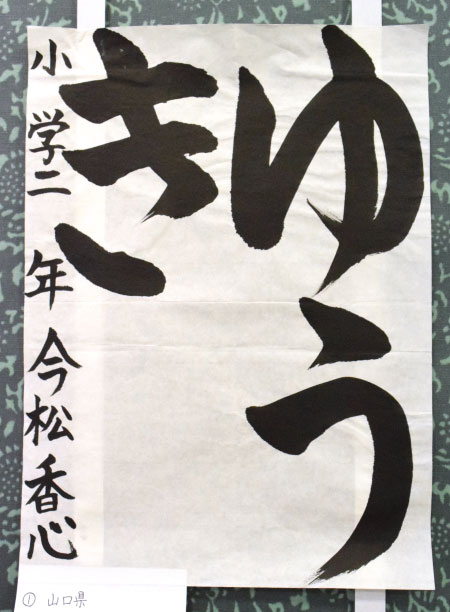 ゆう
き
小学二年 今松香心
① 山口県